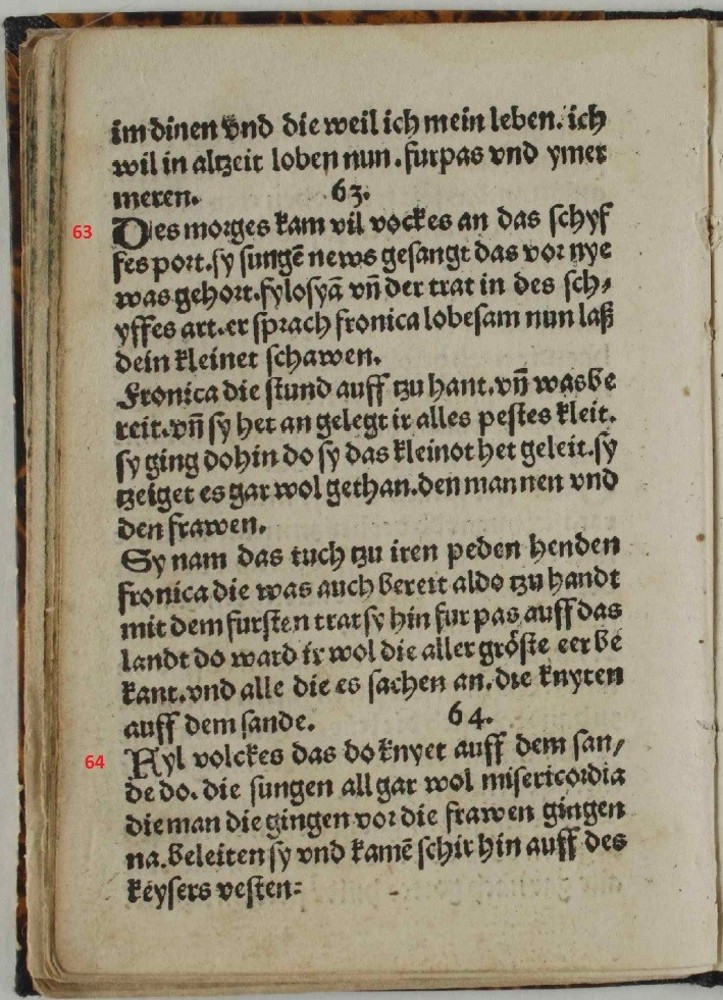 im dinen vnd die weil ich mein leben. ich
wil in altzeit loben nun. furpas vnd ymer
meren. 63.
63 Des morges kam vil vockes an das schyf
fes port. sy sungē news gesangt das vor nye
was gehort. fylosyā vn̄ der trat in des sch⸗
yffes art. er sprach fronica lobesam nun laß
dein kleinet schawen.
Fronica die stund auff tzu hant. vn̄ was be
reit. vn̄ sy het an gelegt ir alles pestes kleit.
sy ging dohin do sy das kleinot het geleit. sy
tzeiget es gar wol gethan. den mannen vnd
den frawen.
Sy nam das tuch tzu iren peden henden
fronica die was auch bereit aldo tzu handt
mit dem fursten trat sy hin fur pas auff das
landt do ward ir wol die aller gröste eer be
kant. vnd alle die es sachen an. die knyten
auff dem sande. 64.
64 Vyl volckes das do knyet auff dem san/
de do. die sungen all gar wol misericordia
die man die gingen vor die frawen gingen
na. beleiten sy vnd kamē schir hin auff des
keysers vesten: